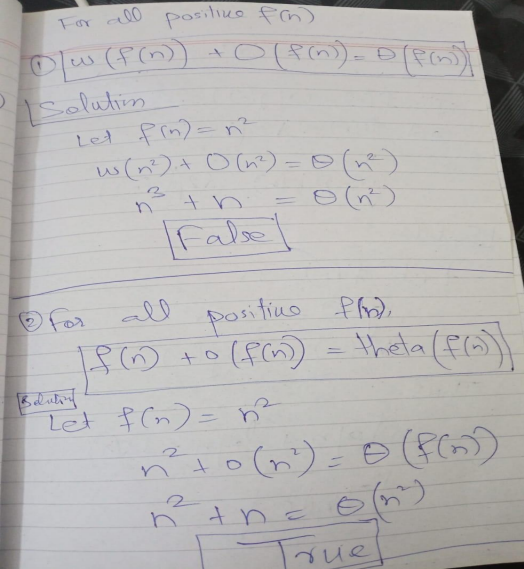 For all positive f(n)
① w(f(n)) + O(f(n)) = Θ(f(n))
Solution
Let f(n) = n²
w(n²) + O(n²) = Θ(n²)
n³ + n = Θ(n²)
False
② For all positive f(n),
f(n) + o(f(n)) = theta(f(n))
Solution
Let f(n) = n²
n² + o(n²) = Θ(f(n))
n² + n = Θ(n²)
True